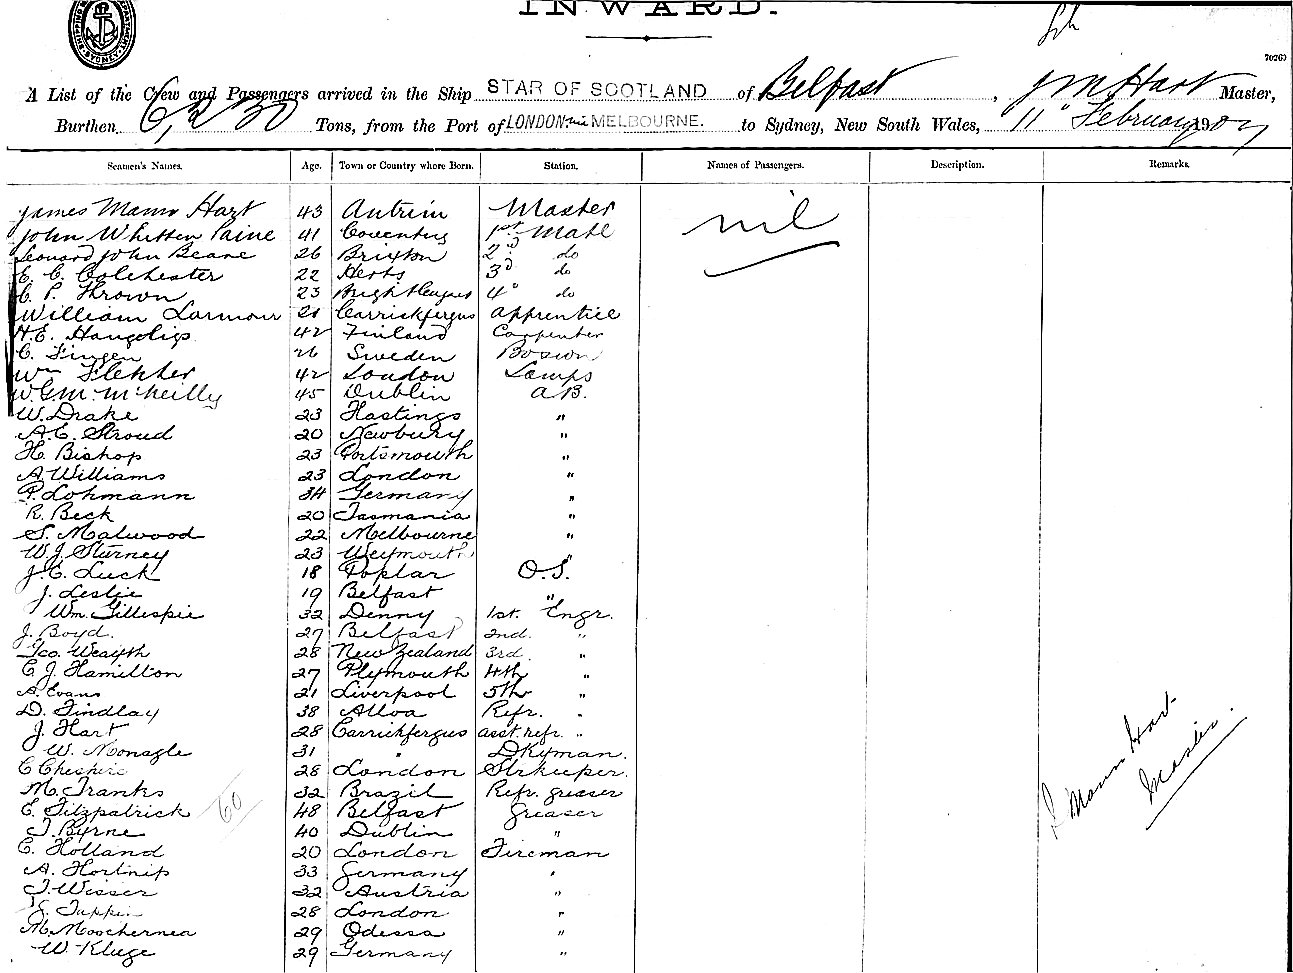 INWARD.
70263
A List of the Crew and Passengers arrived in the Ship STAR OF SCOTLAND of Belfast, J M Hart Master,
Burthen 6,230 Tons, from the Port of LONDON via MELBOURNE. to Sydney, New South Wales, 11" February 190
Seamen's Names. Age. Town or Country where Born. Station. Names of Passengers. Description. Remarks.
James Mann Hart 43 Antrim Master nil
John Whitten Paine 41 Coventry 1st Mate
Leonard John Beane 26 Brixton 2d do
E. C. Colchester 22 Herts 3d do
C. P. Thrown 23 4" do
William Larmour 21 Carrickfergus Apprentice
H.E. 42 Finland Carpenter
C. Fingen 26 Sweden Bosun
Wm Fletcher 42 London Lamps
W. G. M. McNeilly 45 Dublin A.B.
W. Drake 23 Hastings "
A.E. Stroud 20 Newbury "
H. Bishop 23 Portsmouth "
A Williams 23 London "
P. Lohmann 34 Germany "
R. Beck 20 Tasmania "
S. Malwood 22 Melbourne "
W. J. Sturney 23 Weymouth "
J. E. Luck 18 Poplar O.S.
J. Leslie 19 Belfast "
Wm. Gillespie 32 Denny 1st. Engr.
J. Boyd. 27 Belfast 2nd. "
Geo. 28 New Zealand 3rd "
C J. Hamilton 27 Plymouth 4th "
A. Evans 21 Liverpool 5th "
D. Findlay 38 Alloa Refr. "
J. Hart 28 Carrickfergus asst. refr. "
W. Monagle 31 " Dkyman.
C Cheshire 28 London Strkeeper.
M. Franks 32 Brazil Refr. greaser
E. Fitzpatrick 48 Belfast Greaser
60
T. Byrne 40 Dublin "
C. Holland 20 London Fireman
A. Hortnip 33 Germany "
J. Wisser 32 Austria "
J. Tuppin 28 London "
M. Moochernea 29 Odessa "
W. Kluge 29 Germany "
J Mann Hart
Master.